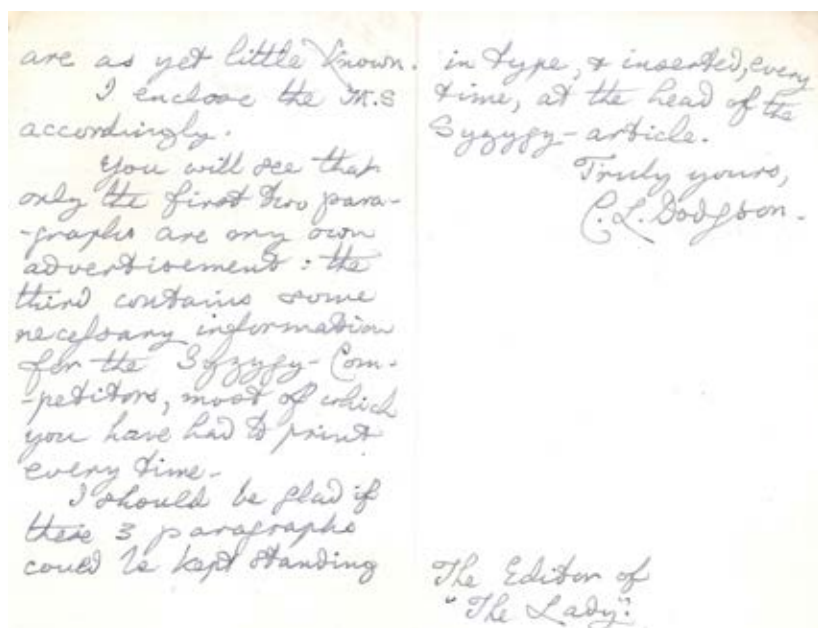 are as yet little known.
I enclose the M.S
accordingly.
You will see that
only the first two para-
-graphs are my own
advertisement: the
third contains some
necessary information
for the Syzygy-Com-
-petitors, most of which
you have had to print
every time.
I should be glad if
these 3 paragraphs
could be kept standing
in type, & inserted, every
time, at the head of the
Syzygy-article.
Truly yours,
C. L. Dodgson.
The Editor of
"The Lady".